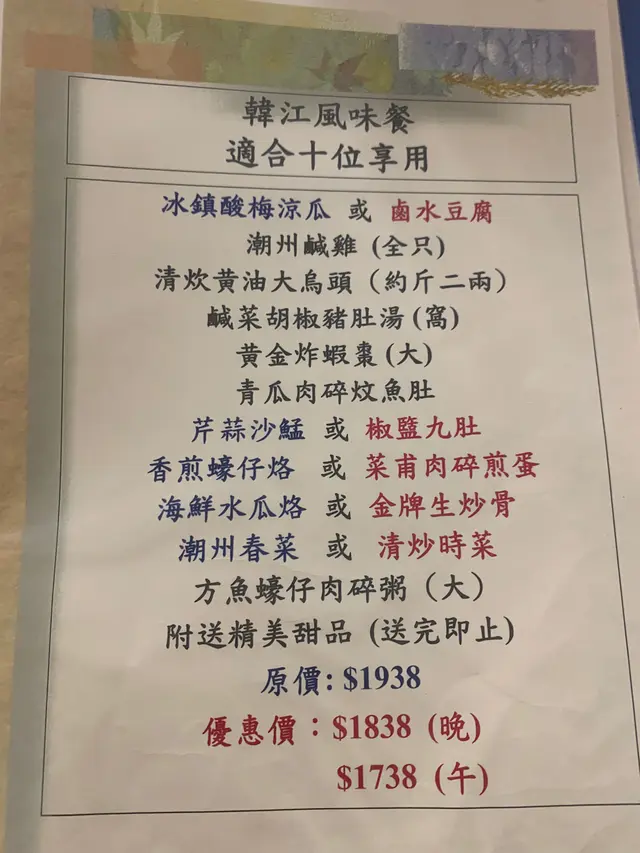 韓江風味餐
適合十位享用
冰鎮酸梅涼瓜 或 鹵水豆腐
潮州鹹雞 (全只)
清炊黃油大烏頭（約斤二兩）
鹹菜胡椒豬肚湯 (窩)
黃金炸蝦棗 (大)
青瓜肉碎炆魚肚
芹蒜沙鯭 或 椒鹽九肚
香煎蠔仔烙 或 菜甫肉碎煎蛋
海鮮水瓜烙 或 金牌生炒骨
潮州春菜 或 清炒時菜
方魚蠔仔肉碎粥（大）
附送精美甜品 (送完即止)
原價: $1938
優惠價：$1838 (晚)
$1738 (午)